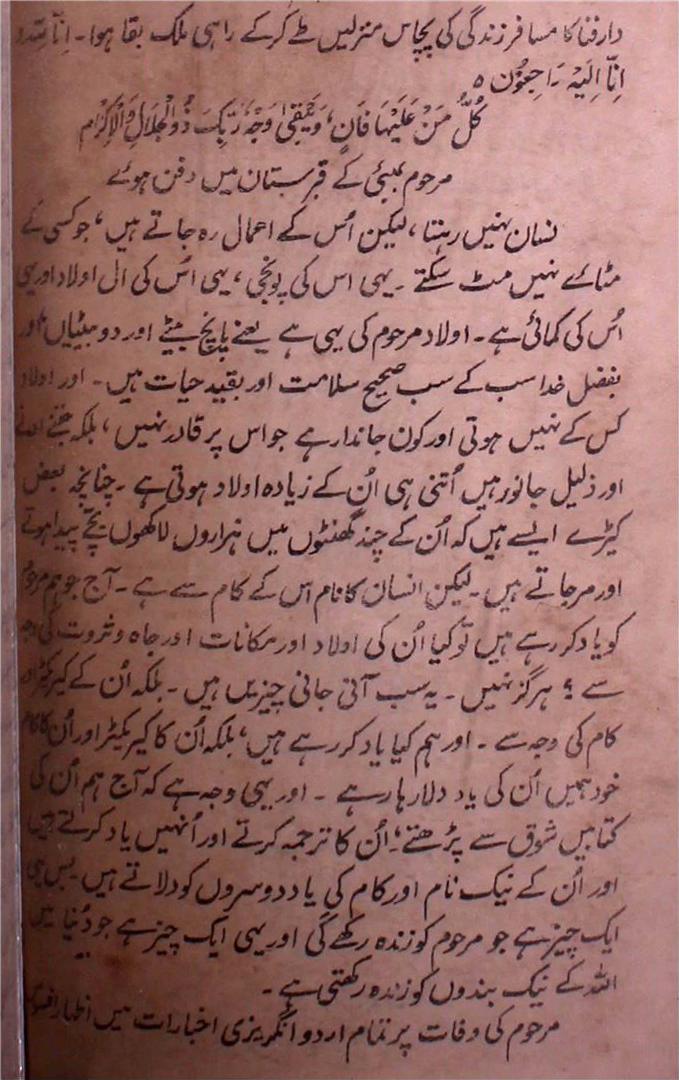 دارفنا کا مسافر زندگی کی پچاس منزلیں طے کرکے راہی ملک بقا ہوا۔ اِنّا
اِنّا اِلَیْہِ رَاجِعُوْن ٥
کُلُّ مَنْ عَلَیْهَا فَانٍ، وَیَبْقٰی وَجْہُ رَبِّکَ ذُوالْجَلَالِ وَالْاِکْرَام
مرحوم بمبئی کے قبرستان میں دفن ہوئے
نسان نہیں رہتا، لیکن اُس کے اعمال رہ جاتے ہیں، جو کسی کے
مٹائے نہیں مٹ سکتے ۔ یہی اس کی پونجی، یہی اُس کی ال اولاد اور یہی
اُس کی کمائی ہے۔ اولاد مرحوم کی یہی ہے یعنے پانچ بیٹے اور دو بیٹیاں اور
بفضل خدا سب کے سب صحیح سلامت اور بقید حیات ہیں۔ اور اولاد
کس کے نہیں ہوتی اور کون جاندار ہے جو اس پر قادر نہیں، بلکہ جتنے ادنے
اور ذلیل جانور ہیں اُتنی ہی اُن کے زیادہ اولاد ہوتی ہے ۔ چنانچہ بعض
کیڑے ایسے ہیں کہ اُن کے چند گھنٹوں میں ہزاروں لاکھوں بچّے پیدا ہوتے
اور مرجاتے ہیں ۔ لیکن انسان کا نام اس کے کام سے ہے ۔ آج جو ہم مرحوم
کو یاد کر رہے ہیں تو کیا اُن کی اولاد اور مکانات اور جاہ و ثروت کی وجہ
سے ؟ ہرگز نہیں ۔ یہ سب آتی جانی چیزیں ہیں ۔ بلکہ اُن کے کیرکٹر اور
کام کی وجہ سے ۔ اور ہم کیا یاد کر رہے ہیں، بلکہ اُن کا کیریکٹر اور اُن کا کام
خود ہمیں اُن کی یاد دلا رہا رہے ۔ اور یہی وجہ ہے کہ آج ہم اُن کی
کتابیں شوق سے پڑھتے، اُن کا ترجمہ کرتے اور اُنہیں یاد کرتے ہیں
اور اُن کے نیک نام اور کام کی یاد دوسروں کو دلاتے ہیں ۔ بس یہی
ایک چیز ہے جو مرحوم کو زندہ رکھے گی اور یہی ایک چیز ہے جو دُنیا میں
اللہ کے نیک بندوں کو زندہ رکھتی ہے ۔
مرحوم کی وفات پر تمام اردو انگریزی اخبارات میں اظہار افسوس